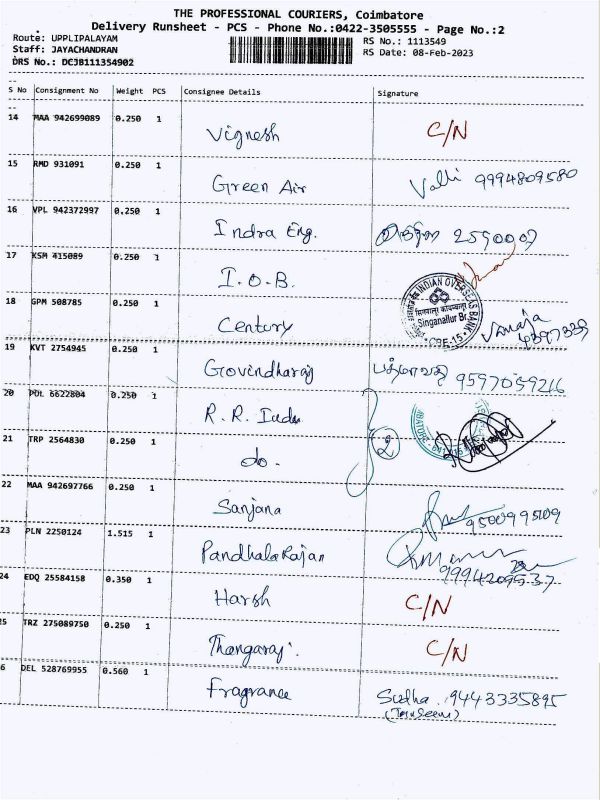 THE PROFESSIONAL COURIERS, Coimbatore
Delivery Runsheet - PCS - Phone No.:0422-3505555 - Page No.:2
Route: UPPLIPALAYAM
RS No.: 1113549
Staff: JAYACHANDRAN
RS Date: 08-Feb-2023
DRS No.: DCJB111354902
S No Consignment No Weight PCS Consignee Details Signature
14 MAA 942699089 0.250 1 Vignesh C/N
15 RMD 931091 0.250 1 Green Air Valli 9994809580
16 VPL 942372997 0.250 1 Indra Eng. 2590007
17 KSM 415089 0.250 1 I.O.B.
INDIAN OVERSEAS BANK
Singanallur Br.
CBE-15
18 GPM 508785 0.250 1 Century 4397339
19 KVT 2754945 0.250 1 Govindharaj பத்மாவதி 9597059216
20 PDL 6622804 0.250 1 R. R. Indu
21 TRP 2564830 0.250 1 do. 2
22 MAA 942697766 0.250 1 Sanjana 9500995109
23 PLN 2250124 1.515 1 PandhalaRajan 9994209537
24 EDQ 25584158 0.350 1 Harsh C/N
25 TRZ 275089750 0.250 1 Thangaraj. C/N
6 DEL 528769955 0.560 1 Fragrance Sudha. 9443335895